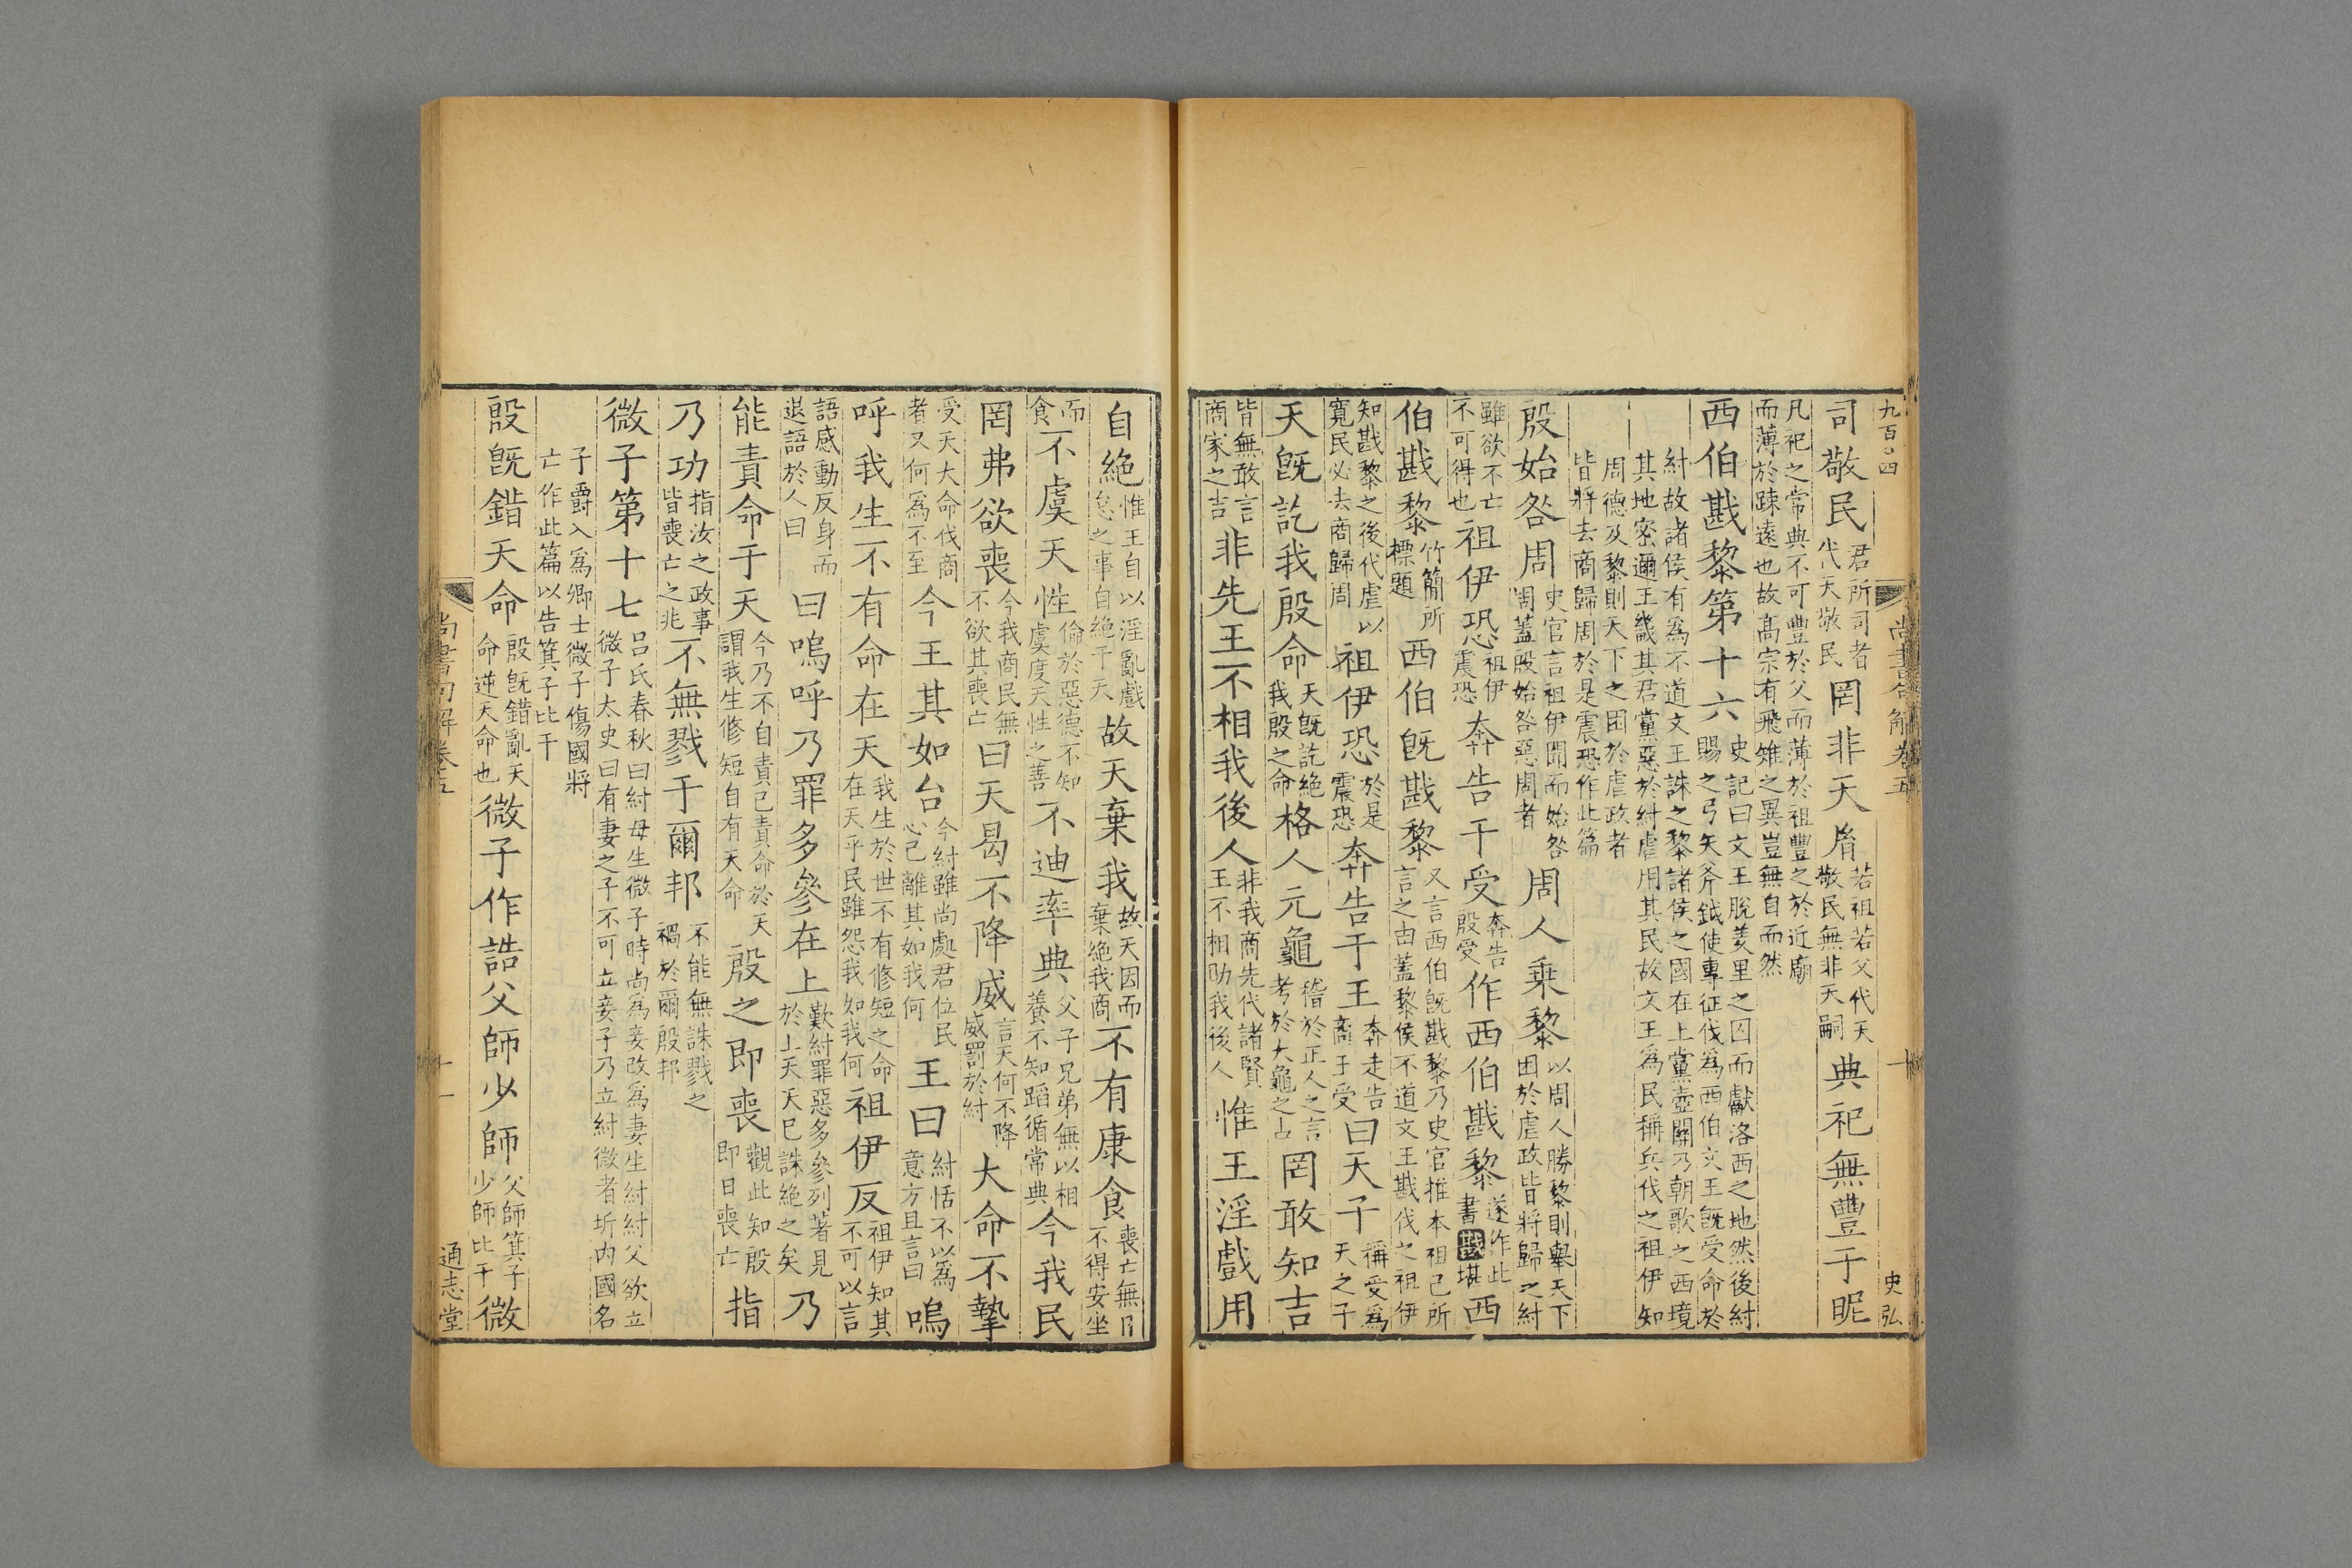 九百四 尚書句解卷五 十 史弘
司敬民君所司者代天敬民罔非天胤若祖若父代天敬民無非天嗣典祀無豐于昵
凡祀之常典不可豐於父而薄於祖豐之於近廟
而薄於踈遠也故髙宗有飛雉之異豈無自而然
西伯戡黎第十六史記曰文王脫羑里之囚而獻洛西之地然後紂賜之弓矢斧鉞使專征伐爲西伯文王旣受命於
紂故諸侯有爲不道文王誅之黎諸侯之國在上黨壺關乃朝歌之西境
其地密邇王畿其君黨惡於紂虐用其民故文王爲民稱兵伐之祖伊知
周德及黎則天下之困於虐政者
皆將去商歸周於是震恐作此篇
殷始咎周史官言祖伊聞而始咎周蓋殷始咎惡周者周人乗黎以周人勝黎則舉天下困於虐政皆將歸之紂
雖欲不亡不可得也祖伊恐祖伊震恐奔告于受奔告殷受作西伯戡黎遂作此書戡堪西
伯戡黎竹簡所標題西伯旣戡黎又言西伯旣戡黎乃史官推本祖己所言之由蓋黎侯不道文王戡伐之祖伊
知戡黎之後代虐以寬民必去商歸周祖伊恐於是震恐奔告于王奔走告商王受曰天子稱受爲天之子
天旣訖我殷命天旣訖絶我殷之命格人元龜稽於正人之言考於大龜之占罔敢知吉
皆無敢言商家之吉非先王不相我後人非我商先代諸賢王不相助我後人惟王淫戲用
自絶惟王自以淫亂戲怠之事自絶于天故天棄我故天因而棄絶我商不有康食喪亡無日不得安坐
而食不虞天性倫於惡德不知虞度天性之善不迪率典父子兄弟無以相養不知蹈循常典今我民
罔弗欲喪今我商民無不欲其喪亡曰天曷不降威言天何不降威罰於紂大命不摯
受天大命伐商者又何爲不至今王其如台今紂雖尚處君位民心已離其如我何王曰紂恬不以爲意方且言曰嗚
呼我生不有命在天我生於世不有修短之命在天乎民雖怨我如我何祖伊反祖伊知其不可以言
語感動反身而退語於人曰曰嗚呼乃罪多參在上歎紂罪惡多參列著見於上天天已誅絶之矣乃
能責命于天今乃不自責己責命於天謂我生修短自有天命殷之即喪觀此知殷即日喪亡指
乃功指汝之政事皆喪亡之兆不無戮于爾邦不能無誅戮之禍於爾殷邦
微子第十七吕氏春秋曰紂母生微子時尚爲妾改爲妻生紂紂父欲立微子太史曰有妻之子不可立妾子乃立紂微者圻内國名
子爵入爲卿士微子傷國將
亡作此篇以告箕子比干
殷旣錯天命殷旣錯亂天命逆天命也微子作誥父師少師父師箕子少師比干微
尚書句解卷五 十一 通志堂